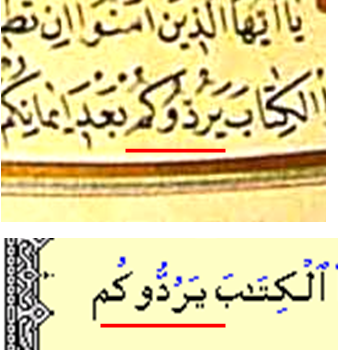 يَا اَيُّهَا الَّذِينَ اٰمَنُوا اِنْ
الْكِتَابَ يَرُدُّوكُمْ بَعْدَ اِيمَانِكُمْ
ٱلْكِتَـٰبَ يَرُدُّوكُم